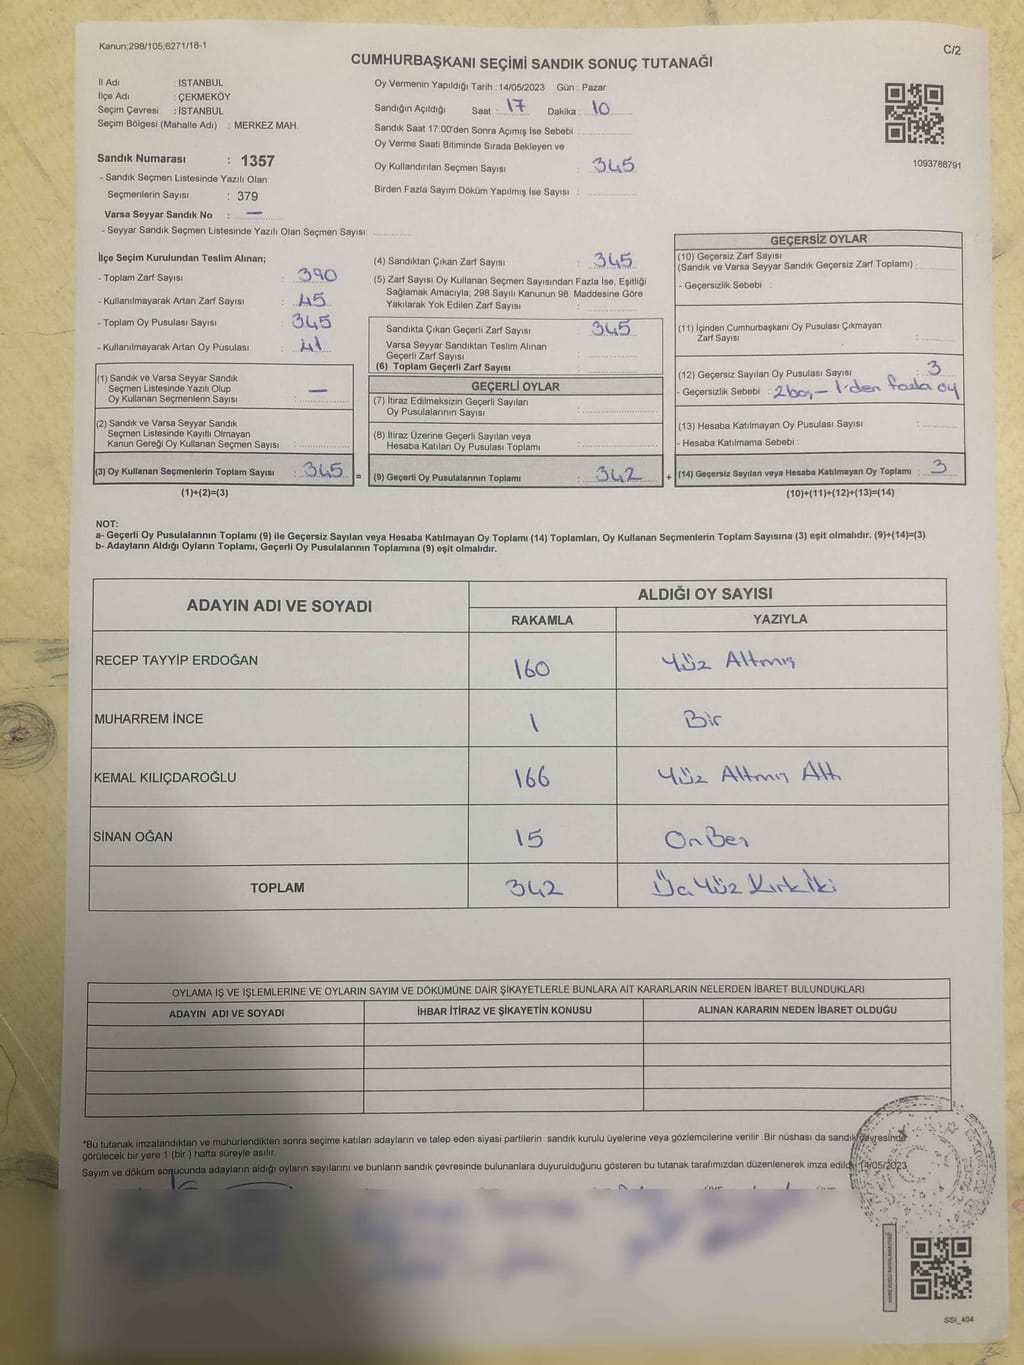 Kanun;298/105;6271/18-1
C/2
CUMHURBAŞKANI SEÇİMİ SANDIK SONUÇ TUTANAĞI
İl Adı : İSTANBUL
İlçe Adı : ÇEKMEKÖY
Seçim Çevresi : İSTANBUL
Seçim Bölgesi (Mahalle Adı) : MERKEZ MAH.
Sandık Numarası : 1357
- Sandık Seçmen Listesinde Yazılı Olan
Seçmenlerin Sayısı : 379
Varsa Seyyar Sandık No : —
- Seyyar Sandık Seçmen Listesinde Yazılı Olan Seçmen Sayısı:
Oy Vermenin Yapıldığı Tarih : 14/05/2023 Gün : Pazar
Sandığın Açıldığı Saat : 17 Dakika : 10
Sandık Saat 17:00'den Sonra Açımış İse Sebebi :
Oy Verme Saati Bitiminde Sırada Bekleyen ve
Oy Kullandırılan Seçmen Sayısı : 345
Birden Fazla Sayım Döküm Yapılmış İse Sayısı :
1093788791
İlçe Seçim Kurulundan Teslim Alınan;
- Toplam Zarf Sayısı : 390
- Kullanılmayarak Artan Zarf Sayısı : 45
- Toplam Oy Pusulası Sayısı : 345
- Kullanılmayarak Artan Oy Pusulası : 41
(1) Sandık ve Varsa Seyyar Sandık
Seçmen Listesinde Yazılı Olup
Oy Kullanan Seçmenlerin Sayısı : —
(2) Sandık ve Varsa Seyyar Sandık
Seçmen Listesinde Kayıtlı Olmayan
Kanun Gereği Oy Kullanan Seçmen Sayısı :
(3) Oy Kullanan Seçmenlerin Toplam Sayısı : 345 =
(1)+(2)=(3)
(4) Sandıktan Çıkan Zarf Sayısı : 345
(5) Zarf Sayısı Oy Kullanan Seçmen Sayısından Fazla İse, Eşitliği
Sağlamak Amacıyla; 298 Sayılı Kanunun 98. Maddesine Göre
Yakılarak Yok Edilen Zarf Sayısı :
Sandıkta Çıkan Geçerli Zarf Sayısı : 345
Varsa Seyyar Sandıktan Teslim Alınan
Geçerli Zarf Sayısı :
(6) Toplam Geçerli Zarf Sayısı :
GEÇERLİ OYLAR
(7) İtiraz Edilmeksizin Geçerli Sayılan
Oy Pusulalarının Sayısı :
(8) İtiraz Üzerine Geçerli Sayılan veya
Hesaba Katılan Oy Pusulası Toplamı :
(9) Geçerli Oy Pusulalarının Toplamı : 342 +
GEÇERSİZ OYLAR
(10) Geçersiz Zarf Sayısı
(Sandık ve Varsa Seyyar Sandık Geçersiz Zarf Toplamı) :
- Geçersizlik Sebebi :
(11) İçinden Cumhurbaşkanı Oy Pusulası Çıkmayan
Zarf Sayısı :
(12) Geçersiz Sayılan Oy Pusulası Sayısı : 3
- Geçersizlik Sebebi : 2boş - 1'den fazla oy
(13) Hesaba Katılmayan Oy Pusulası Sayısı :
- Hesaba Katılmama Sebebi :
(14) Geçersiz Sayılan veya Hesaba Katılmayan Oy Toplamı : 3
(10)+(11)+(12)+(13)=(14)
NOT:
a- Geçerli Oy Pusulalarının Toplamı (9) ile Geçersiz Sayılan veya Hesaba Katılmayan Oy Toplamı (14) Toplamları, Oy Kullanan Seçmenlerin Toplam Sayısına (3) eşit olmalıdır. (9)+(14)=(3)
b- Adayların Aldığı Oyların Toplamı, Geçerli Oy Pusulalarının Toplamına (9) eşit olmalıdır.
ADAYIN ADI VE SOYADI ALDIĞI OY SAYISI
RAKAMLA YAZIYLA
RECEP TAYYİP ERDOĞAN 160 Yüz Altmış
MUHARREM İNCE 1 Bir
KEMAL KILIÇDAROĞLU 166 Yüz Altmış Altı
SİNAN OĞAN 15 OnBeş
TOPLAM 342 Üç Yüz Kırk İki
OYLAMA İŞ VE İŞLEMLERİNE VE OYLARIN SAYIM VE DÖKÜMÜNE DAİR ŞİKAYETLERLE BUNLARA AİT KARARLARIN NELERDEN İBARET BULUNDUKLARI
ADAYIN ADI VE SOYADI İHBAR İTİRAZ VE ŞİKAYETİN KONUSU ALINAN KARARIN NEDEN İBARET OLDUĞU
*Bu tutanak imzalandıktan ve mühürlendikten sonra seçime katılan adayların ve talep eden siyasi partilerin sandık kurulu üyelerine veya gözlemcilerine verilir .Bir nüshası da sandık çevresinde
görülecek bir yere 1 (bir ) hafta süreyle asılır.
Sayım ve döküm sonucunda adayların aldığı oyların sayılarını ve bunların sandık çevresinde bulunanlara duyurulduğunu gösteren bu tutanak tarafımızdan düzenlenerek imza edildi. 14/05/2023
SSI_404